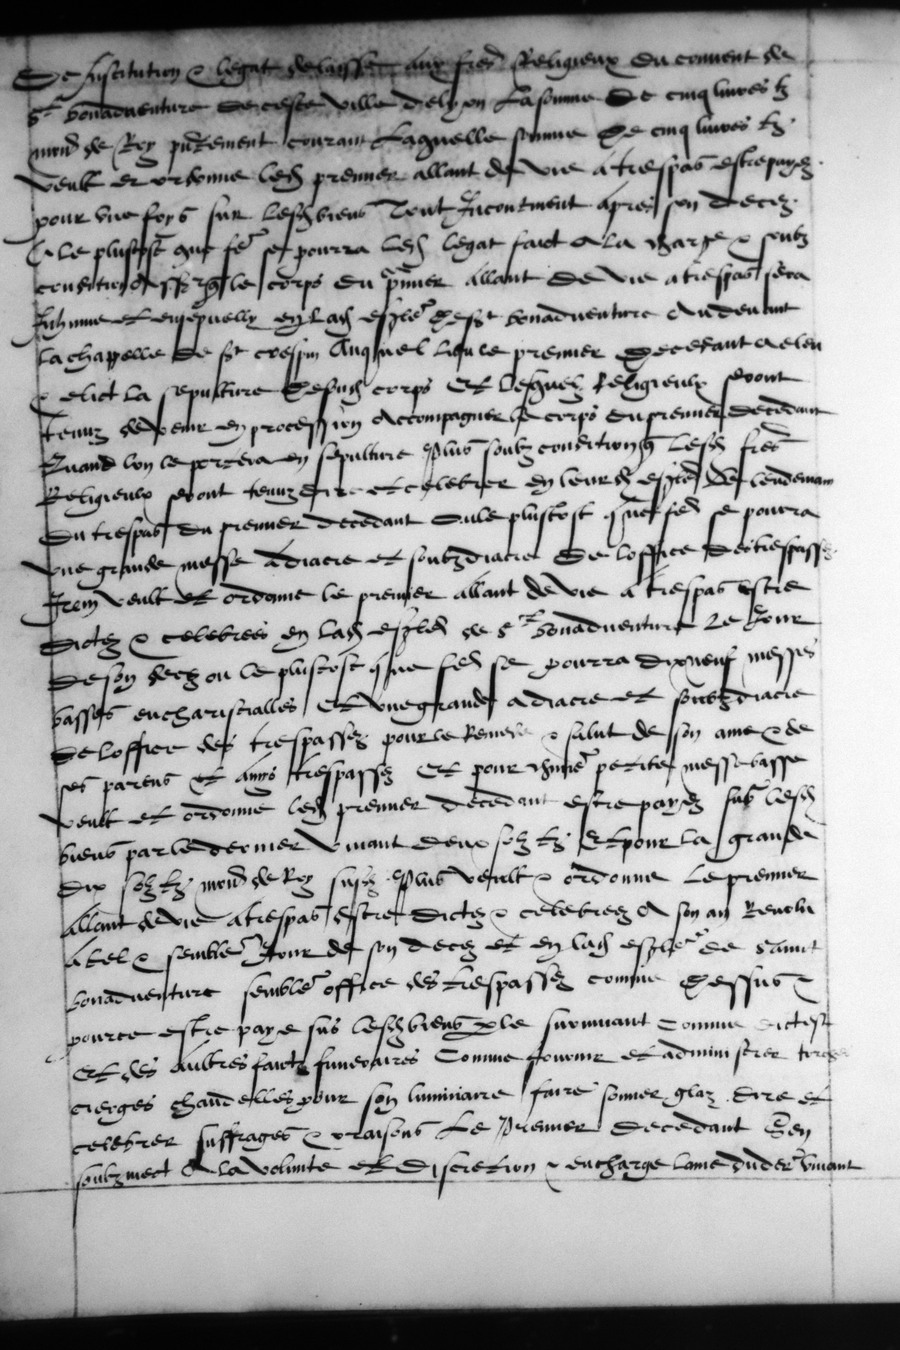 De Institution & legat delaisse aux fres Religieux du convent de
st bonadventure de ceste ville de lyon La somme De cinq livres tz
monn de Roy pntement courant Laquelle somme De cinq livres tz
veult et ordonne led premier allant de vie a trespas estre payee
pour une foys sur lesd biens Tout Incontinent apres son decez
& le plustost que fe se pourra led legat faict a la charge & soubz
condition le corps du pmier allant De vie a trespas sera
Inhume et ensepvelly en lad eszle dest bonadventure Au devant
La chappelle de st crespin Auquel lieu le premier decedant a eleu
& elict la sepulture desond corps Et lesquelz Religieulx seront
tenuz de venir en procession Accompagner le corps du premier decedant
Quand lon le portera en sepulture Plus soubz condition q lesd fres
Religieulx seront tenuz dire et celebrer en leurd eszle Le lendemain
du trespas du premier decedant ou le plustost que fe se pourra
une grande messe a diacre et soubzdiacre De loffice des trespassez
Item veult et ordonne le premier allant de vie a trespas Estre
dictes & celebrees en lad eszle de st bonadventure Le Jour
de son decez ou le plustost que fe se pourra dixneuf messes
basses eucharistialles Et une grande a diacre et soubzdiacre
De loffice des trespassez pour le Remede & salut de son ame & de
ses parens et amys trespassez Et pour chune petite messe basse
veult et ordonne led premier decedant estre payez sus lesd
biens par le dernier vivant deux solz tz Et pour la grande
dix solz tz monn de Roy susd Plus veult & ordonne Le premier
allant de vie a trespas Estre dictes & celebrees A son an Revolu
A tel & semble Jour de son decez et en lad eszle de saint
bonadventure semble office des trespassez comme dessus &
pource estre paye sus lesd biens p le survivant Comme dict est
Et des Aultres faictz funeraires Comme fournir et administrer torches
cierges chandelles pour son luminaire faire sonner glaz dire et
celebrer suffrages & oraisons Le Premier decedant Sen
soubzmect A la volunte et Discretion & encharge lame dud der vivant